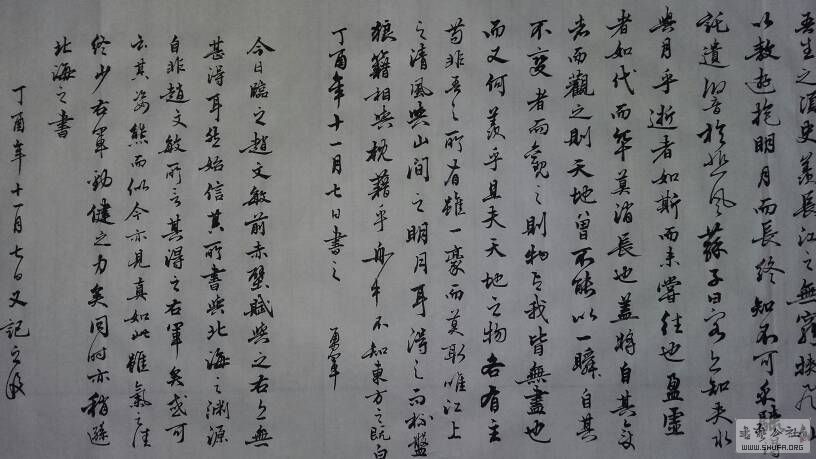 吾生之須臾羡長江之無窮挾飛仙
以敖遊抱明月而長終知不可乎驟得
託遺響於悲風蘇子曰客亦知夫水
與月乎逝者如斯而未嘗往也盈虛
者如代而卒莫消長也蓋將自其變
者而觀之則天地曾不能以一瞬自其
不變者而觀之則物與我皆無盡也
而又何羡乎且夫天地之物各有主
苟非吾之所有雖一豪而莫取唯江上
之清風與山間之明月耳得之而杯盤
狼籍相與枕藉乎舟中不知東方之既白
丁酉年十一月七日書之 勇軍
今日臨之趙文敏前赤壁賦與之右之無
甚得耳然始信其所書與北海之渊源
自非趙文敏所言其得之右軍矣或可
云其姿態而似今亦見真如此雖氣之佳
終少右軍勁健之力矣同時亦稍遜
北海之書
丁酉年十一月七日又記之
書法公社
WWW.SHUFA.ORG